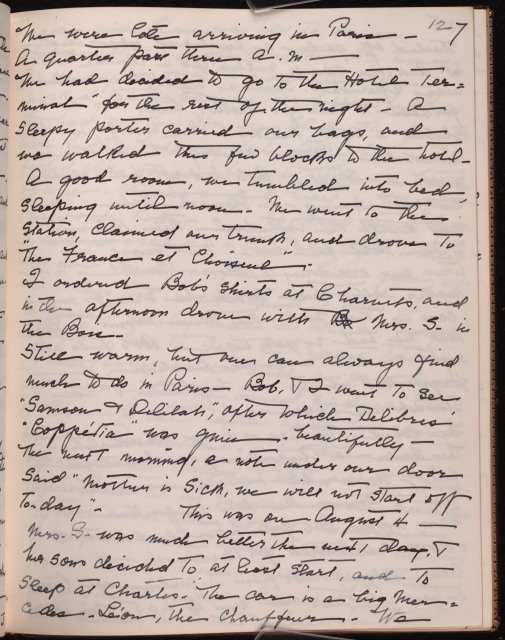 127
We were late arriving in Paris -
A quarter past three a.m -
We had decided to go to the Hotel Ter=
minal" for the rest of the night - A
sleepy porter carried our bags, and
we walked the few blocks to the hotel -
A good room, we tumbled into bed
sleeping until noon. We went to the
station, claimed our trunk, and drove to
"The France et Choiseul" -
I ordered Bob's shirts at Charvets, and
in the afternoon drove with Mrs. S. in
the Bois -
Still warm, but one can always find
much to do in Paris - Bob, & I went to see
"Samson & Delilah", after which Delibes'
"Coppélia" was given - beautifully -
The next morning, a note under our door
said "Mother is sick, we will not start off
to-day" - This was on August 4 -
Mrs. S- was much better the next day, &
her sons decided to at least start, and to
sleep at Chartres. The car is a big Mer=
cedes - Léon, the Chauffeur - We